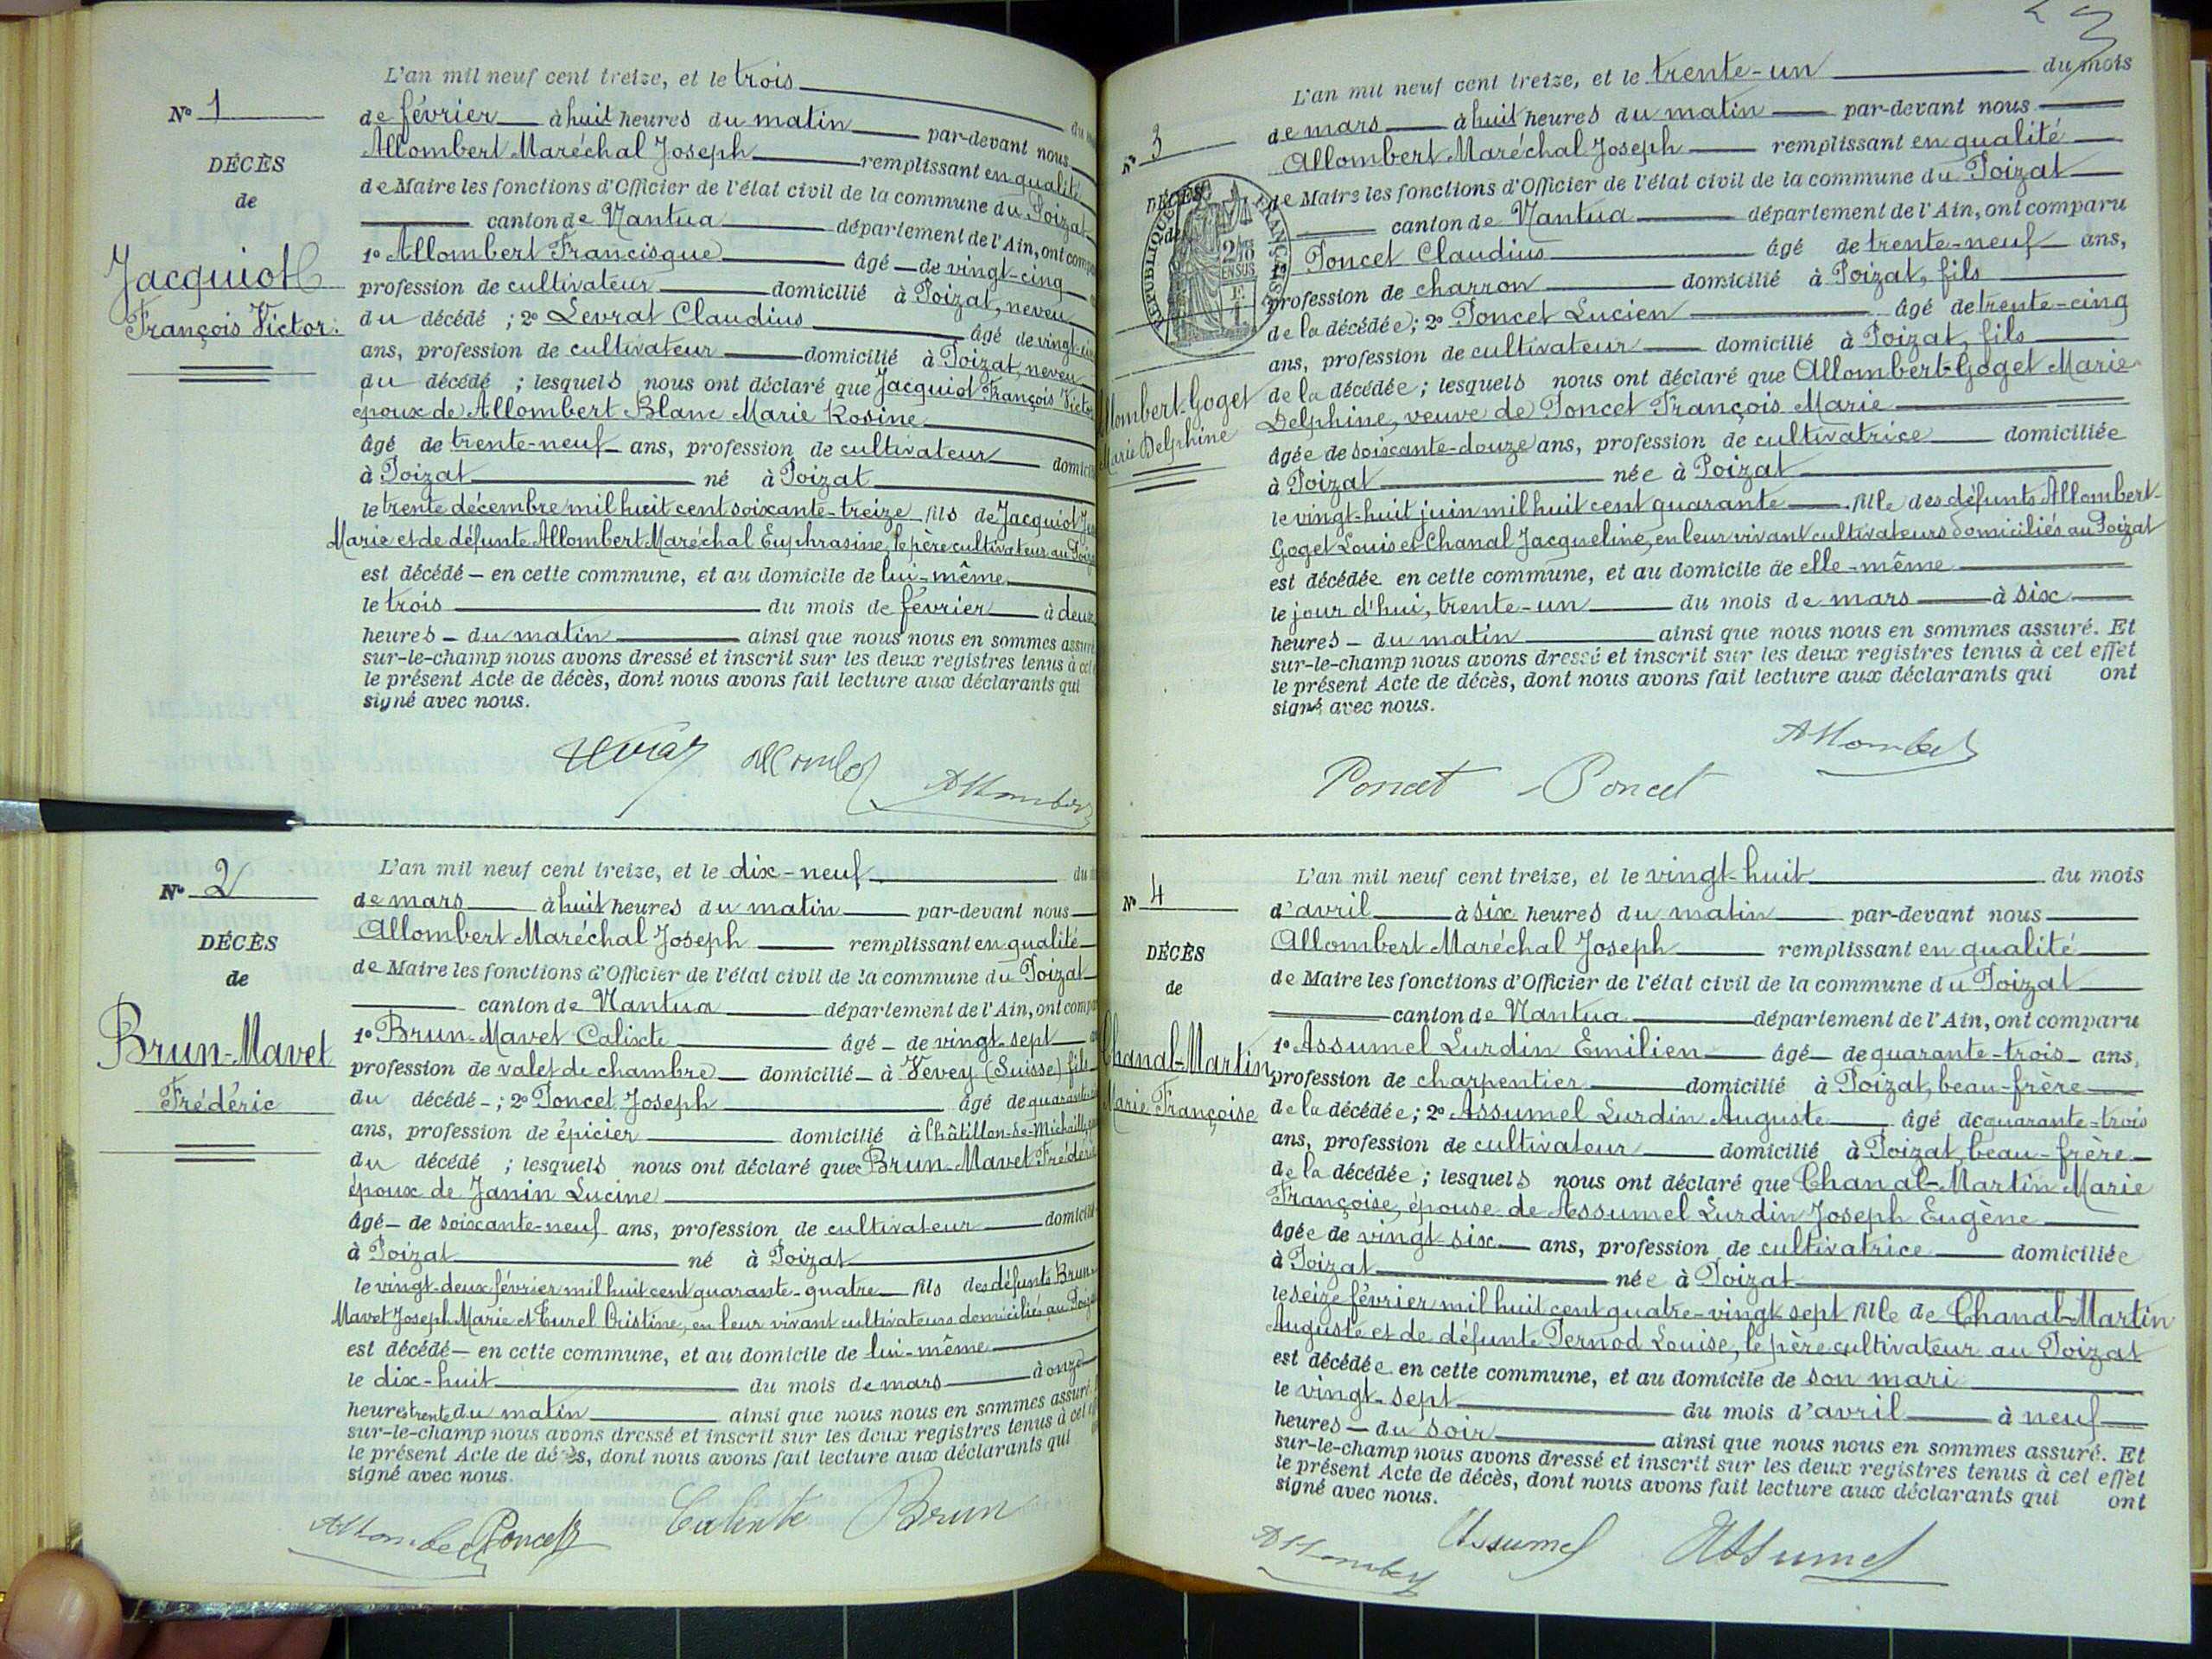 L'an mil neuf cent treize, et le trois
N° 1
de février à huit heures du matin par-devant nous
Allombert Maréchal Joseph remplissant en qualité
DÉCÈS
de Maire les fonctions d'Officier de l'état civil de la commune du Poizat
de
canton de Nantua département de l'Ain, ont
1° Allombert Francisque âgé de vingt-cinq
Jacquiot
profession de cultivateur domicilié à Poizat, neveu
François Victor
du décédé ; 2° Levrat Claudius âgé de
ans, profession de cultivateur domicilié à Poizat, neveu
du décédé ; lesquels nous ont déclaré que Jacquiot François
époux de Allombert Blanc Marie Rosine
âgé de trente-neuf ans, profession de cultivateur
à Poizat né à Poizat
le trente décembre mil huit cent soixante-treize fils de Jacquiot
Marie et de défunte Allombert Maréchal Euphrasine, le père cultivateur au
est décédé en cette commune, et au domicile de lui-même
le trois du mois de février à deux
heures du matin ainsi que nous nous en sommes
sur-le-champ nous avons dressé et inscrit sur les deux registres tenus à
le présent Acte de décès, dont nous avons fait lecture aux déclarants qui
signé avec nous.
L'an mil neuf cent treize, et le dix-neuf
N° 2
de mars à huit heures du matin par-devant nous
Allombert Maréchal Joseph remplissant en qualité
DÉCÈS
de Maire les fonctions d'Officier de l'état civil de la commune du Poizat
de
canton de Nantua département de l'Ain, ont
1° Brun-Mavet Calixte âgé de vingt-sept
Brun-Mavet
profession de valet de chambre domicilié à Vevey (Suisse) fils
Frédéric
du décédé ; 2° Poncet Joseph âgé de
ans, profession de épicier domicilié à Châtillon-de-Michaille
du décédé ; lesquels nous ont déclaré que Brun-Mavet
époux de Janin Lucine
âgé de soixante-neuf ans, profession de cultivateur
à Poizat né à Poizat
le vingt-deux février mil huit cent quarante-quatre fils des défunts Brun-
Mavet Joseph Marie et Curel Cristine, en leur vivant cultivateurs domiciliés au
est décédé en cette commune, et au domicile de lui-même
le dix-huit du mois de mars à onze
heures trente du matin ainsi que nous nous en sommes assuré.
sur-le-champ nous avons dressé et inscrit sur les deux registres tenus à cet
le présent Acte de décès, dont nous avons fait lecture aux déclarants qui
signé avec nous.
Poncet Calixte Brun
L'an mil neuf cent treize, et le trente-un du mois
N° 3
de mars à huit heures du matin par-devant nous
Allombert Maréchal Joseph remplissant en qualité
DÉCÈS
de Maire les fonctions d'Officier de l'état civil de la commune du Poizat
de
canton de Nantua département de l'Ain, ont comparu
RÉPUBLIQUE FRANÇAISE
1° Poncet Claudius âgé de trente-neuf ans,
profession de charron domicilié à Poizat, fils
de la décédée ; 2° Poncet Lucien âgé de trente-cinq
ans, profession de cultivateur domicilié à Poizat, fils
Allombert-Goget
Marie Delphine
de la décédée ; lesquels nous ont déclaré que Allombert-Goget Marie
Delphine, veuve de Poncet François Marie
âgée de soixante-douze ans, profession de cultivatrice domiciliée
à Poizat née à Poizat
le vingt-huit juin mil huit cent quarante fille des défunts Allombert-
Goget Louis et Chanal Jacqueline, en leur vivant cultivateurs domiciliés au Poizat
est décédée en cette commune, et au domicile de elle-même
le jour d'hui, trente-un du mois de mars à six
heures du matin ainsi que nous nous en sommes assuré. Et
sur-le-champ nous avons dressé et inscrit sur les deux registres tenus à cet effet
le présent Acte de décès, dont nous avons fait lecture aux déclarants qui ont
signé avec nous.
Allombert
Poncet Poncet
L'an mil neuf cent treize, et le vingt-huit du mois
N° 4
d'avril à six heures du matin par-devant nous
Allombert Maréchal Joseph remplissant en qualité
DÉCÈS
de Maire les fonctions d'Officier de l'état civil de la commune du Poizat
de
canton de Nantua département de l'Ain, ont comparu
Chanal-Martin
1° Assumel Lurdin Emilien âgé de quarante-trois ans,
profession de charpentier domicilié à Poizat, beau-frère
Marie Françoise
de la décédée ; 2° Assumel Lurdin Auguste âgé de quarante-trois
ans, profession de cultivateur domicilié à Poizat, beau-frère
de la décédée ; lesquels nous ont déclaré que Chanal-Martin Marie
Françoise, épouse de Assumel Lurdin Joseph Eugène
âgée de vingt-six ans, profession de cultivatrice domiciliée
à Poizat née à Poizat
le seize février mil huit cent quatre-vingt-sept fille de Chanal-Martin
Auguste et de défunte Pernod Louise, le père cultivateur au Poizat
est décédée en cette commune, et au domicile de son mari
le vingt-sept du mois d'avril à neuf
heures du soir ainsi que nous nous en sommes assuré. Et
sur-le-champ nous avons dressé et inscrit sur les deux registres tenus à cet effet
le présent Acte de décès, dont nous avons fait lecture aux déclarants qui ont
signé avec nous.
Assumel Assumel